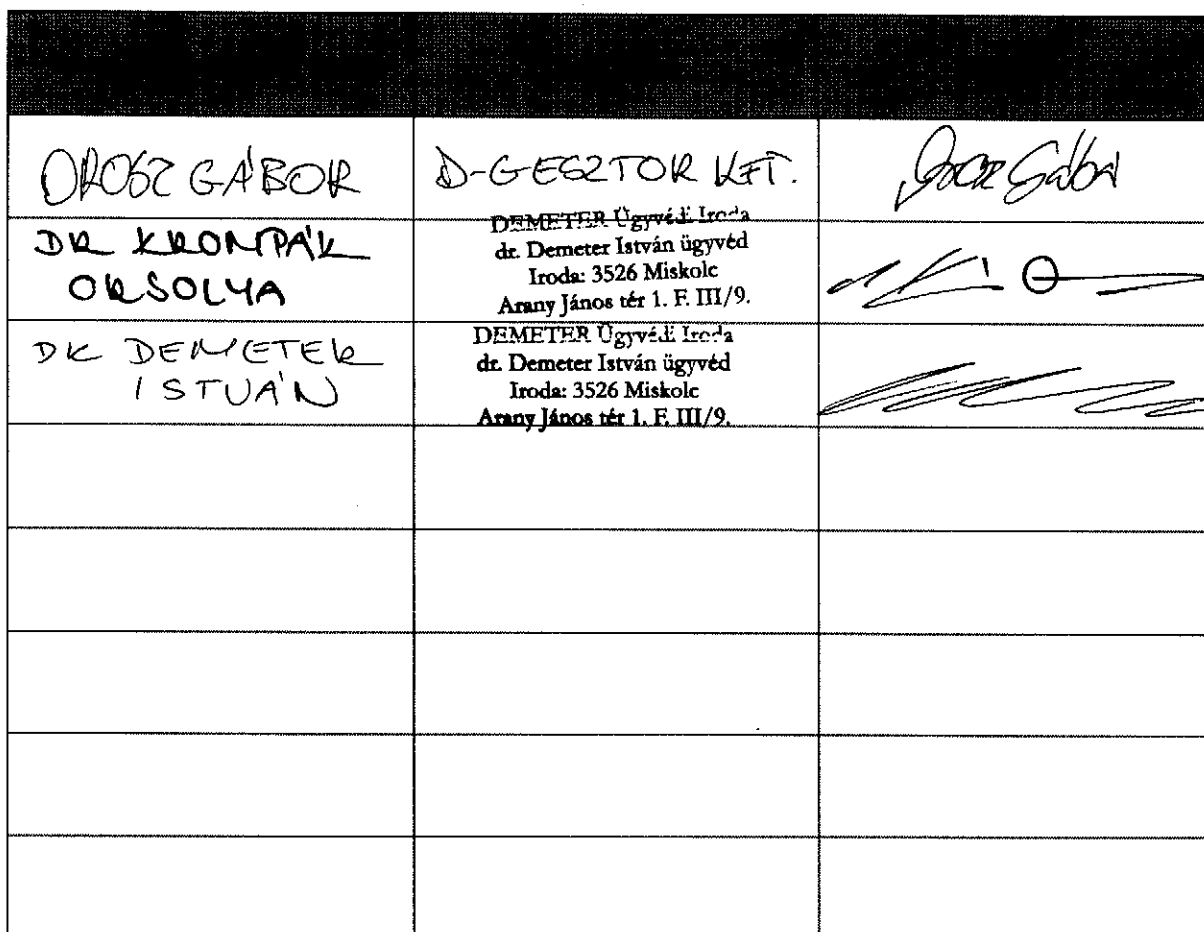 OROSZ GÁBOR
D-GESZTOR KFT.
Orosz Gábor
DR KROMPÁK
ORSOLYA
DEMETER Ügyvédi Iroda
dr. Demeter István ügyvéd
Iroda: 3526 Miskolc
Arany János tér 1. F. III/9.
DR DEMETER
ISTVÁN
DEMETER Ügyvédi Iroda
dr. Demeter István ügyvéd
Iroda: 3526 Miskolc
Arany János tér 1. F. III/9.